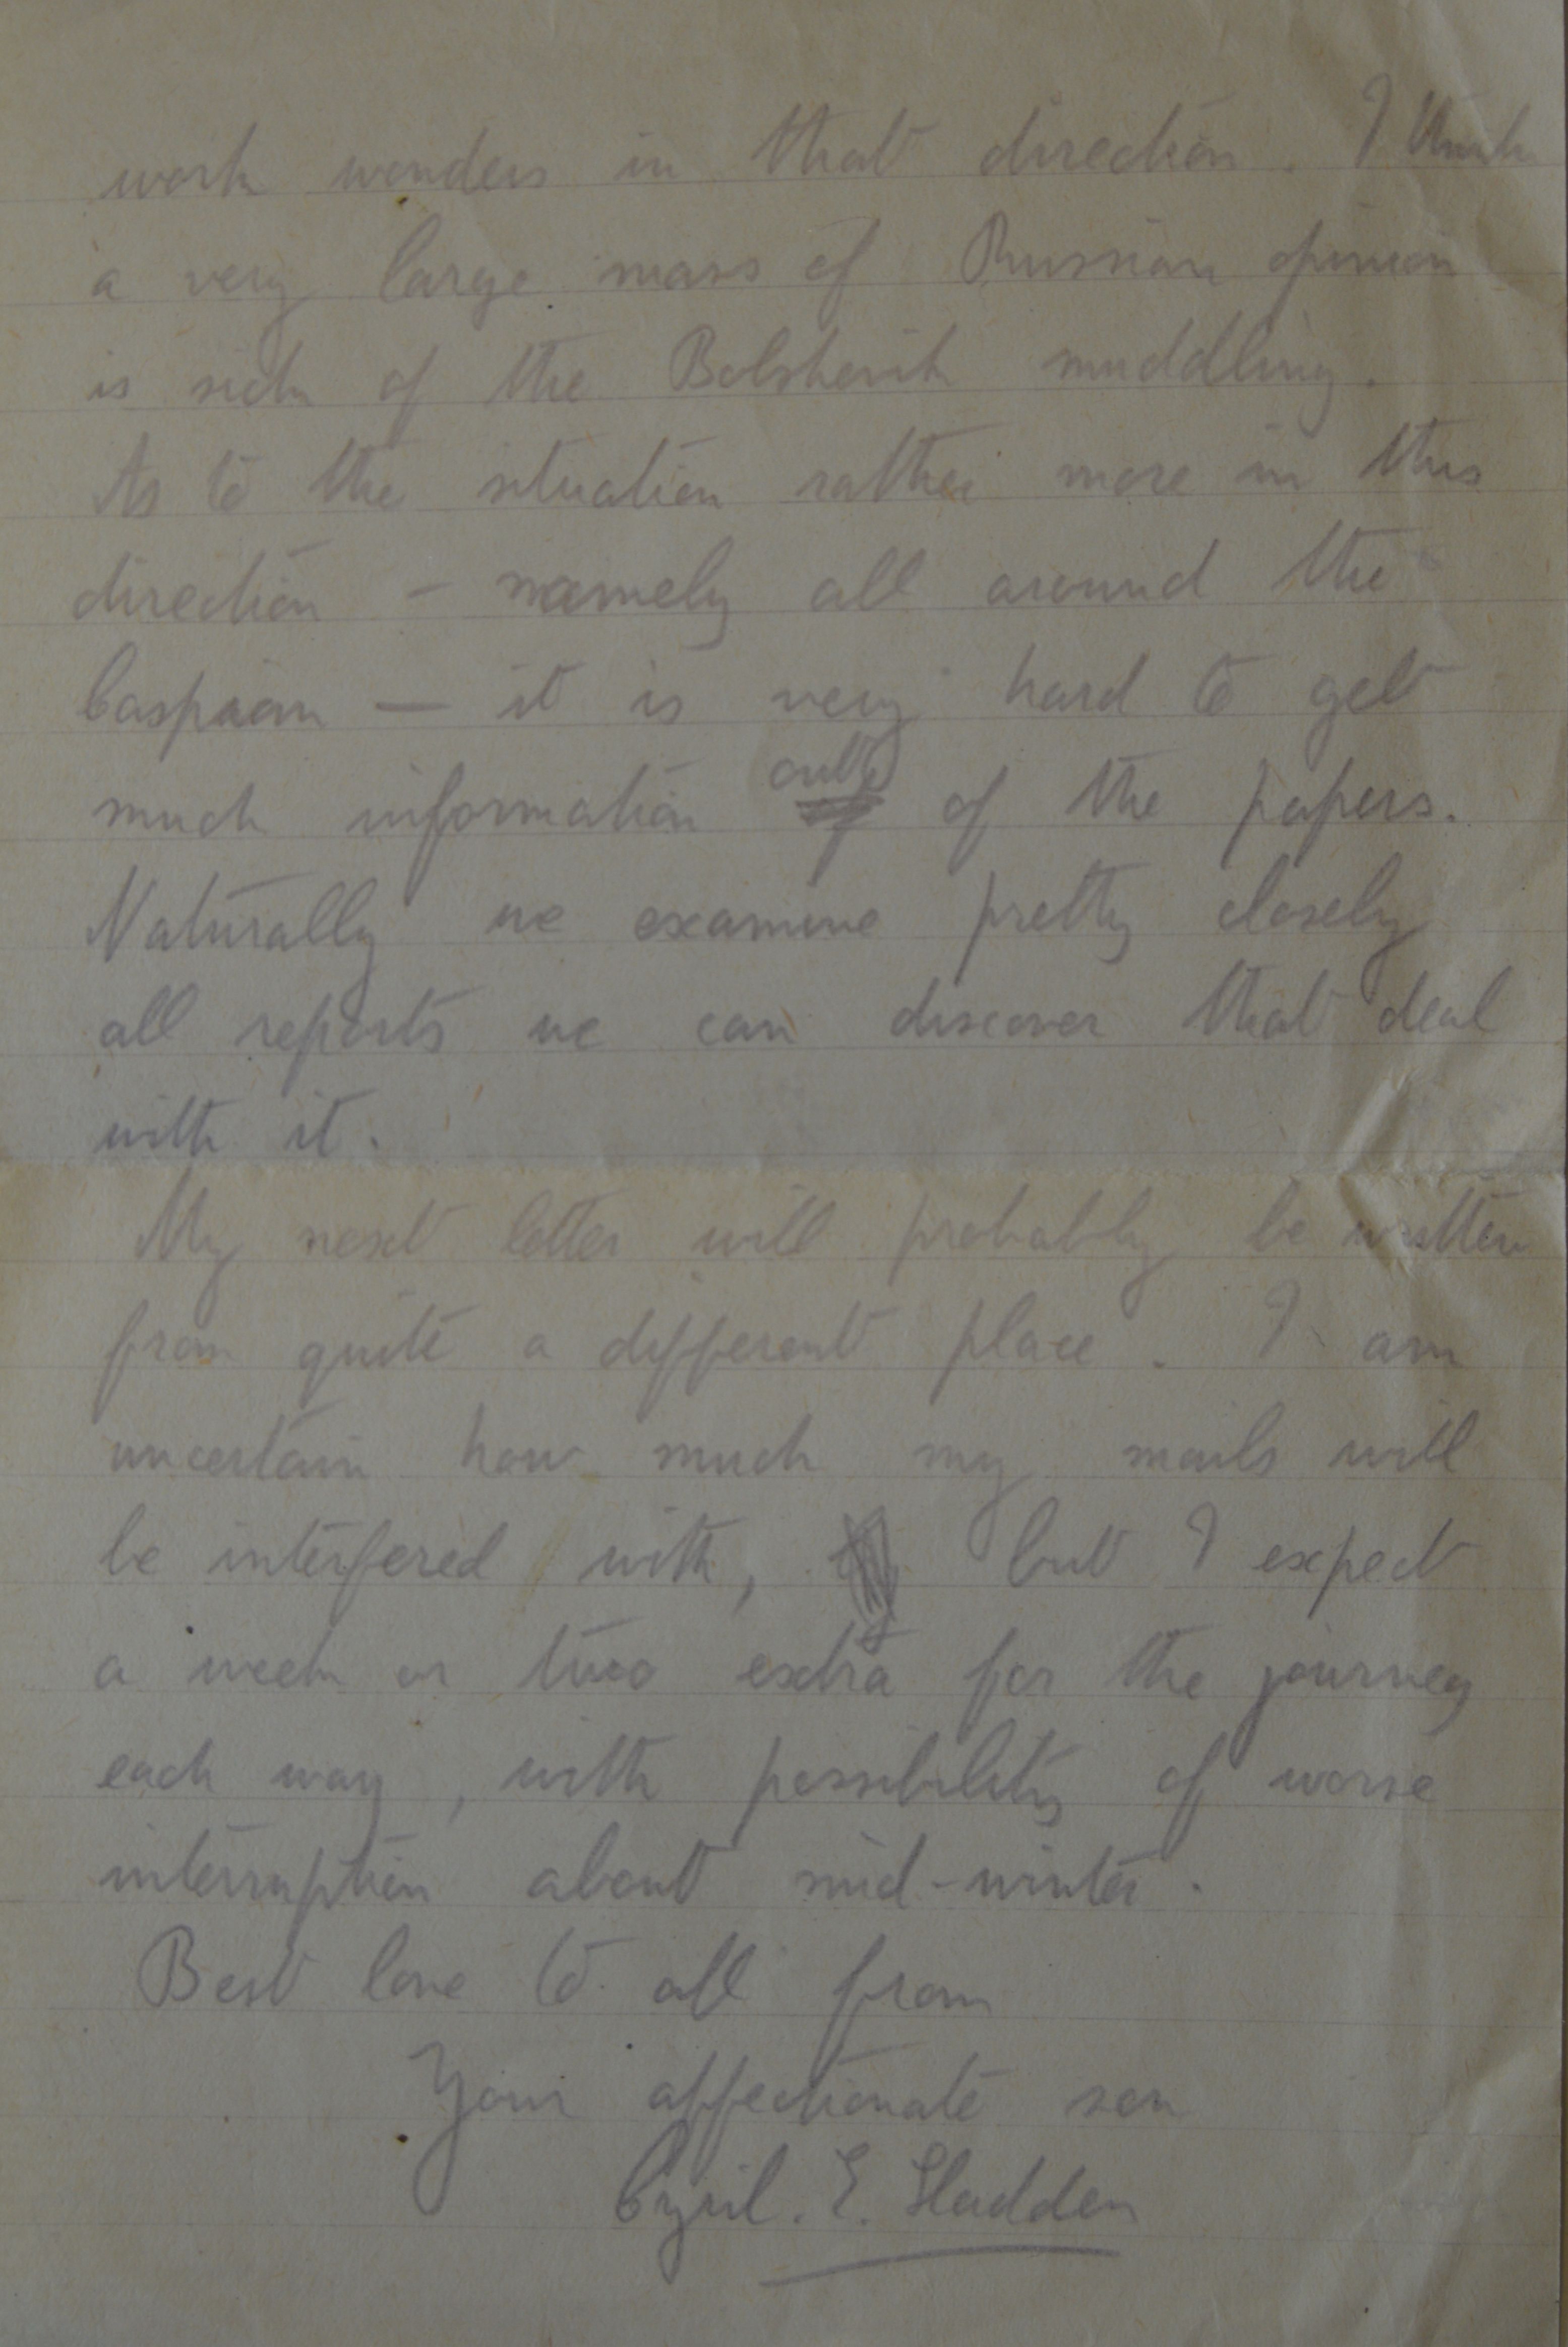 work wonders in that direction. I think
a very large mass of Russian opinion
is sick of the Bolshevik muddling.
As to the situation rather more in this
direction – namely all around the
Caspian — it is very hard to get
much information out of the papers.
Naturally we examine pretty closely
all reports we can discover that deal
with it.
My next letter will probably be written
from quite a different place. I am
uncertain how much my mails will
be interfered with, but I expect
a week or two extra for the journey
each way, with possibility of worse
interruption about mid-winter.
Best love to all from
Your affectionate son
Cyril. E. Sladden